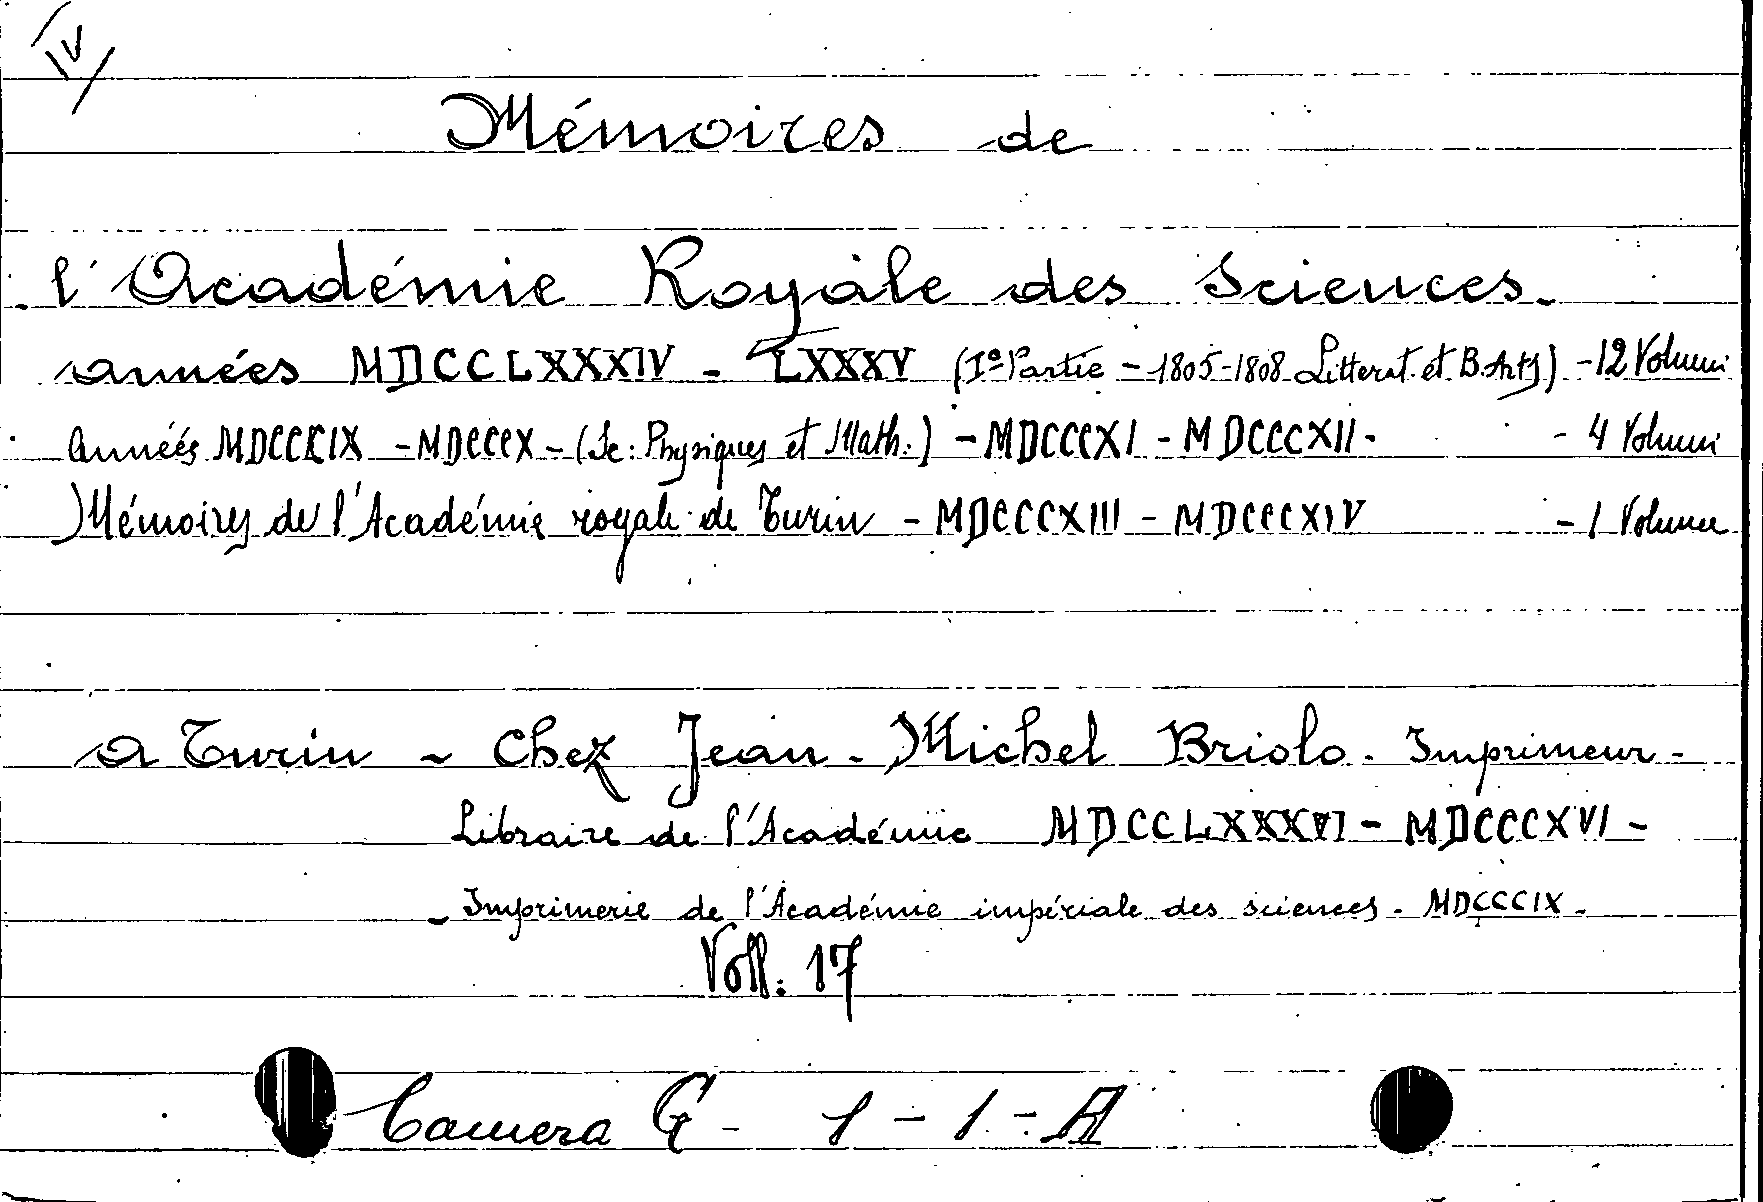 IV
Mémoires de
l'Académie Royale des Sciences.
années MDCCLXXXIV - LXXXV (Iª Partie - 1805-1808 Litterat. et B. Arts) - 12 Volumi
Années MDCCCIX - MDCCCX - (Sc: Physiques et Math.) - MDCCCXI - MDCCCXII - - 4 Volumi
Mémoires de l'Académie royale de Turin - MDCCCXIII - MDCCCXIV - 1 Volume
a Turin - Chez Jean-Michel Briolo. Imprimeur -
Libraire de l'Académie MDCCLXXXVI - MDCCCXVI -
- Imprimerie de l'Académie impériale des sciences - MDCCCIX -
Voll: 17
Camera G - 1 - 1 - A